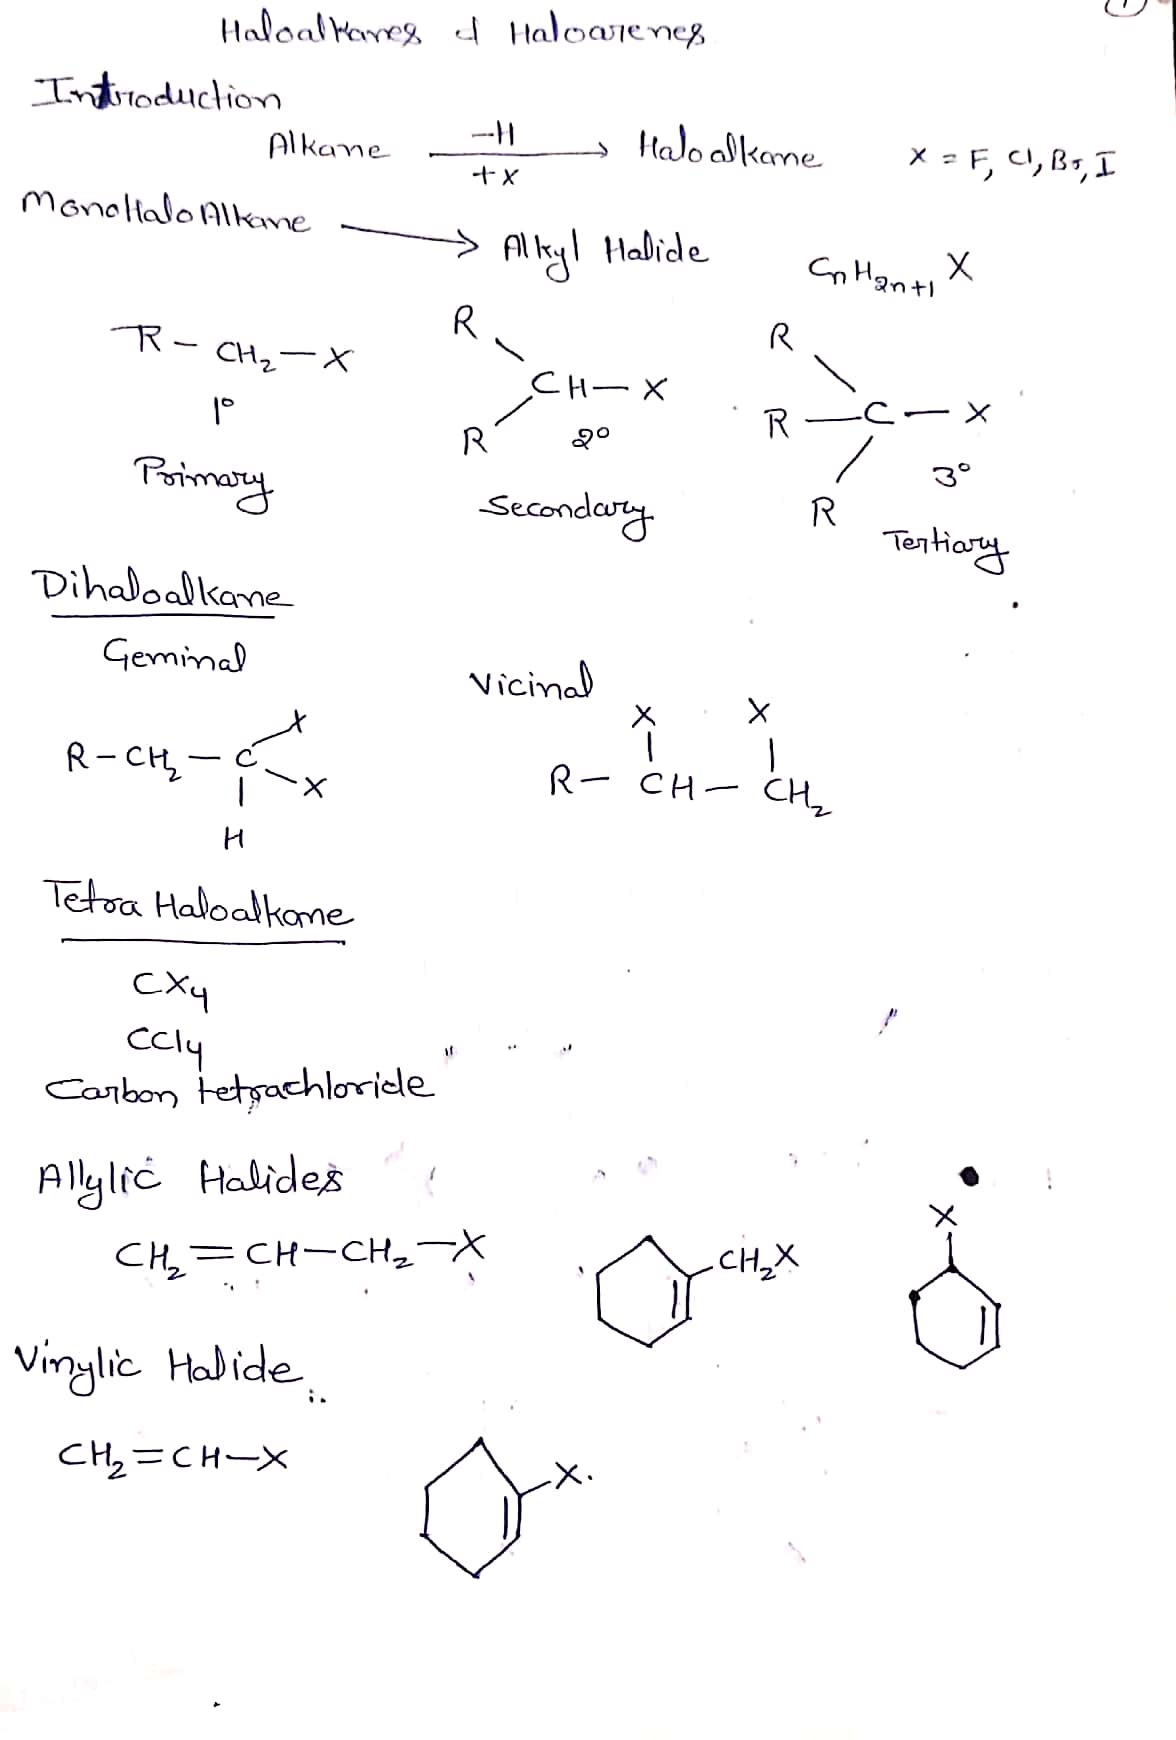 Haloalkanes & Haloarenes
Introduction
Alkane —H +X → Haloalkane X = F, Cl, Br, I
MonoHaloAlkane → Alkyl Halide CnH2n+1 X
R – CH2 – X
1°
Primary
R
R
CH – X
2°
Secondary
R
R – C – X
R
3°
Tertiary
Dihaloalkane
Geminal
R – CH2 – C
X
X
H
Vicinal
X X
R – CH – CH2
Tetra Haloalkane
CX4
CCl4
Carbon tetrachloride
Allylic Halides
CH2 = CH – CH2 – X
CH2X
X
Vinylic Halide
CH2 = CH – X
X.